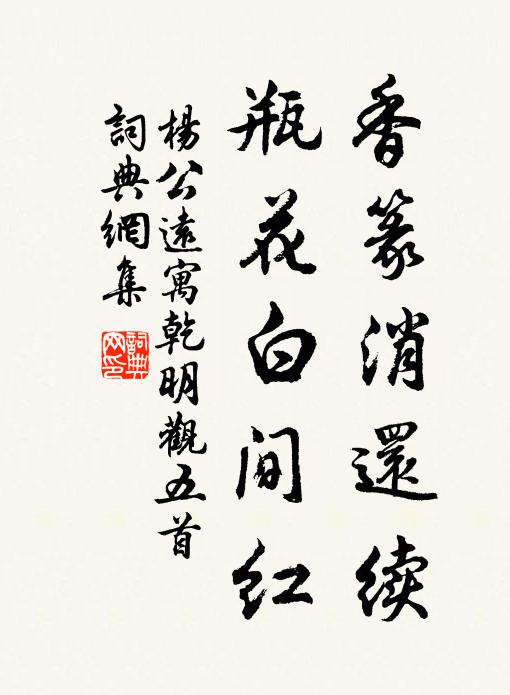 香篆消還续
瓶花白间红
楊公遠寓乾明觀五首
詞典網集
詞典網印